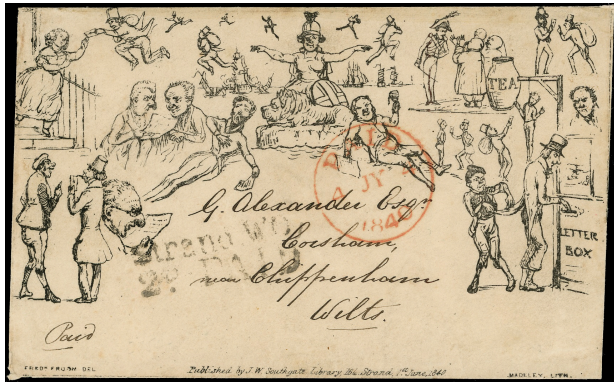 TEA
PAID
JY
1840
G. Alexander Esqr
Corsham,
near Chippenham
Wilts.
Strand WO
2d PAID
LETTER
BOX
Paid
FREDK. FRUSH DEL
Published by J. W. Southgate, Library, 164, Strand, 1st June, 1840
MADELEY, LITH.